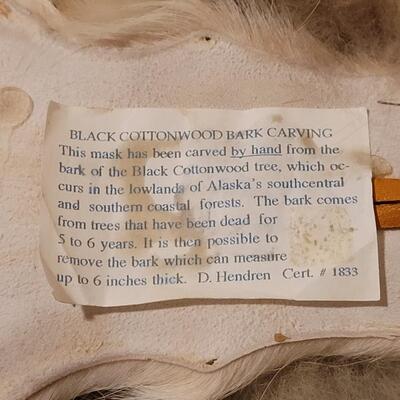 BLACK COTTONWOOD BARK CARVING
This mask has been carved by hand from the
bark of the Black Cottonwood tree, which oc-
curs in the lowlands of Alaska's southcentral
and southern coastal forests. The bark comes
from trees that have been dead for
5 to 6 years. It is then possible to
remove the bark which can measure
up to 6 inches thick. D. Hendren Cert. # 1833